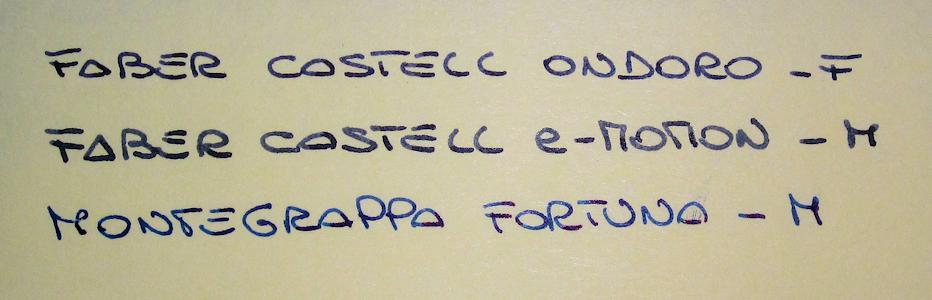 FABER CASTELL ONDORO - F
FABER CASTELL e-MOTION - M
MONTEGRAPPA FORTUNA - M